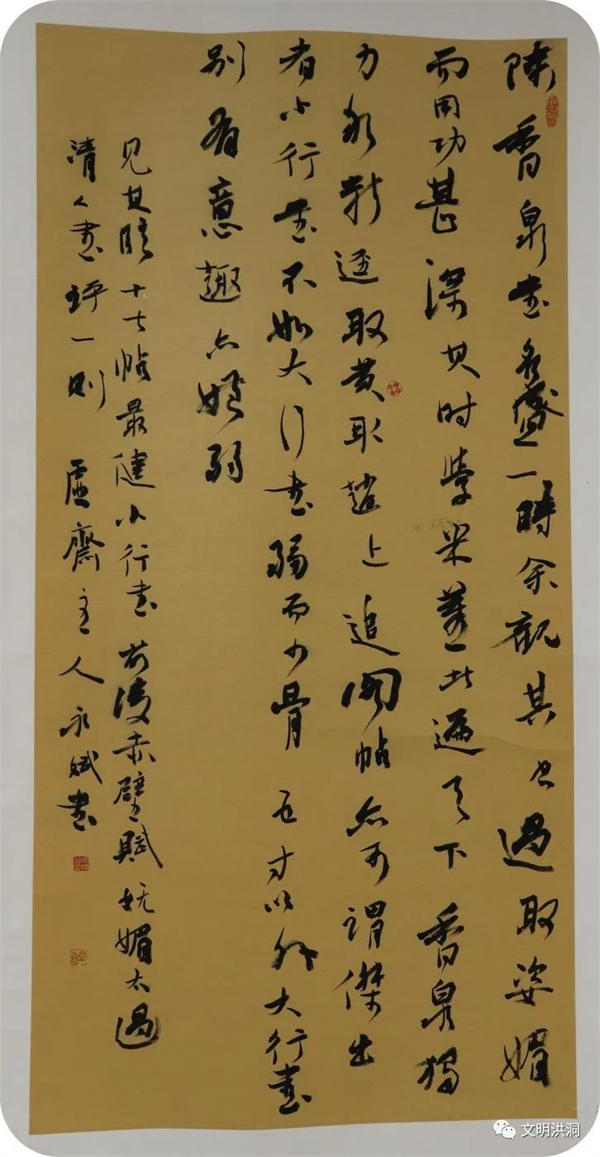 陈香泉书名盛一時余觀其书過取姿媚
而用功甚深其时学米董者遍天下香泉獨
力
取黄取趙上追閣帖亦可謂傑出
者小行書不如大行書弱而少骨五寸以外大行書
别有意趣亦嫌弱
见其临十七帖最健小行書前後赤壁賦妩媚太過
清人書评一则 虚齋主人永斌書
文明洪洞